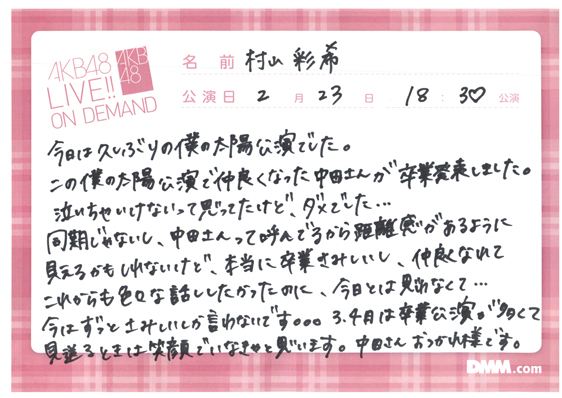 AKB48
LIVE!!
ON DEMAND
AKB
48
名前 村山 彩希
公演日 2 月 23 日 18:30 公演
今日は久しぶりの僕の太陽公演でした。
この僕の太陽公演で仲良くなった中田さんが卒業発表しました。
泣いちゃいけないって思ってたけど、ダメでした…
同期じゃないし、中田さんって呼んでるから距離感があるように
見えるかもしれないけど、本当に卒業さみしいし、仲良くなれて
これからも色々な話ししたかったのに、今日とは思わなくて…
今はずっとさみしいしか言わないです。。。3.4月は卒業公演が多くて
見送るときは笑顔でいなきゃと思います。中田さんおつかれ様です。
DMM.com